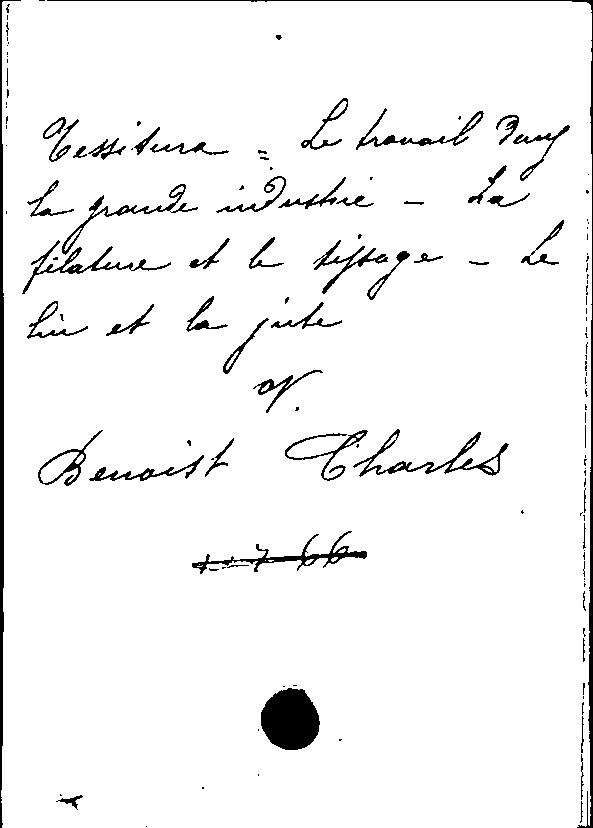 Tessitura = Le travail dans
la grande industrie - La
filature et le tissage - Le
lin et la jute
V.
Benoist Charles